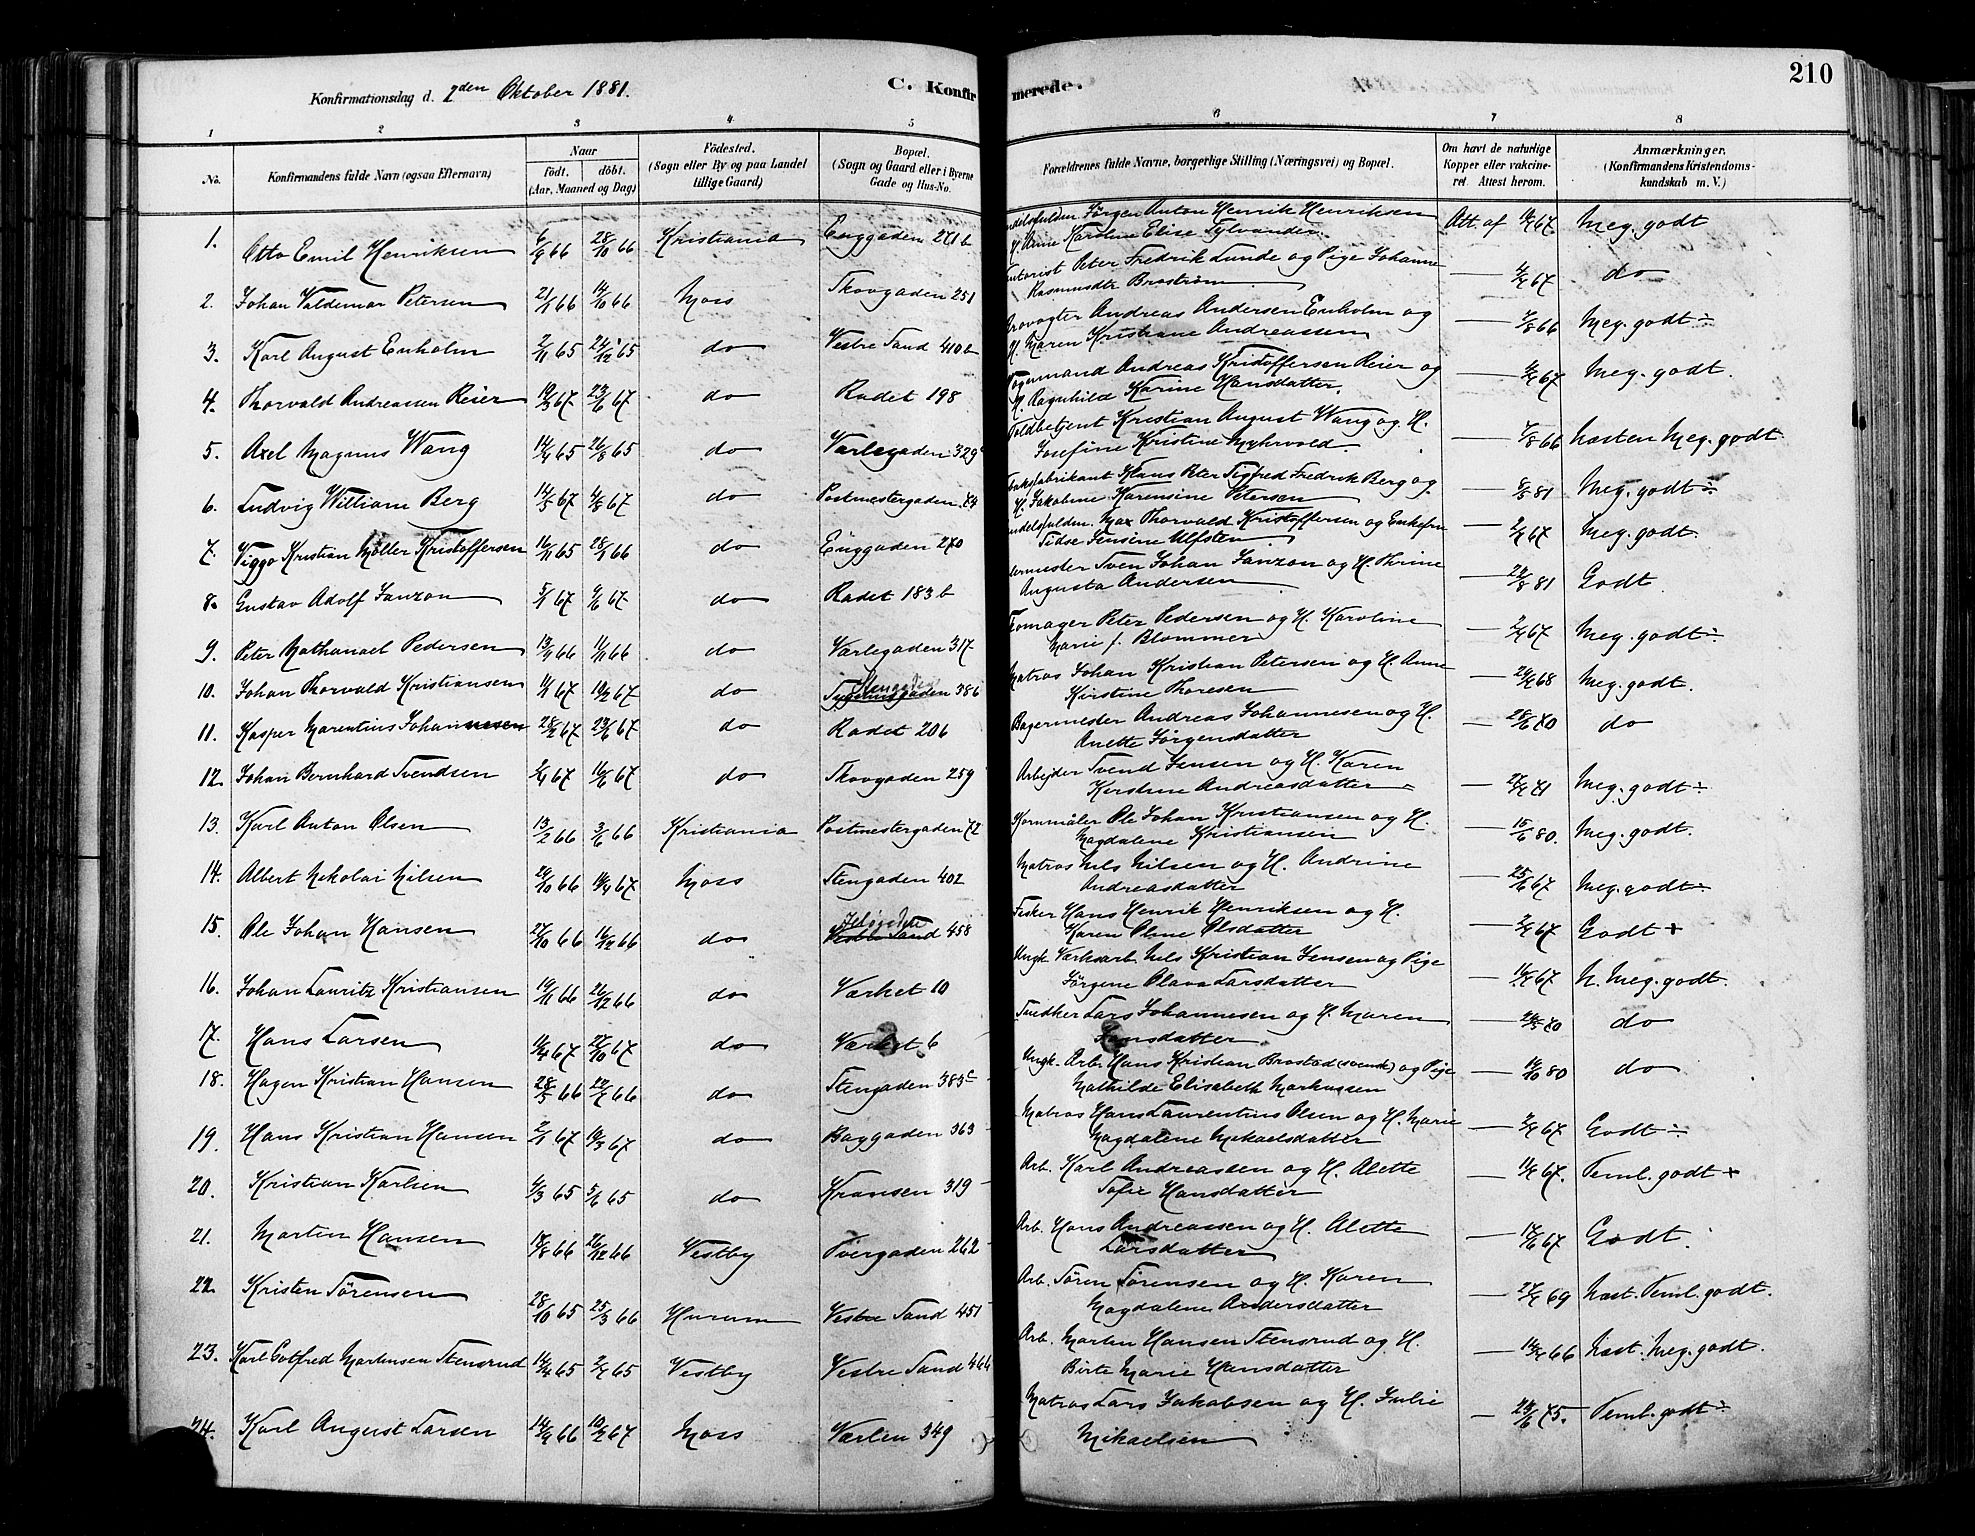 Konfirmationsdag d. 2den Oktober 1881.
C. Konfirmerede.
210
1 2 3 4 5 6 7 8
No.
Konfirmandens fulde Navn (ogsaa Efternavn)
Naar
födt. döbt.
(Aar, Maaned og Dag)
Födested.
(Sogn eller By og paa Landet
tillige Gaard)
Bopæl.
(Sogn og Gaard eller i Byerne
Gade og Hus-No.
Forældrenes fulde Navne, borgerlige Stilling (Næringsvei) og Bopæl.
Om havt de naturlige
Kopper eller vakcine-
ret. Attest herom.
Anmærkninger.
(Konfirmandens Kristendoms-
kundskab m. V.)
1. Otto Emil Henriksen 6/9 66 28/10 66 Kristiania Enggaden 271b Jørgen Anton Henrik Henriksen Att. af 67 Meg. godt
Karoline Elise Sylvander
2. Johan Valdemar Petersen 21/1 66 14/10 66 Moss Skovgaden 251 Peter Fredrik Lunde og Pige Johanne — 67 do
Rasmusdtr Broström
3. Karl August Enholm 2/11 65 24/12 65 do Vestre Sand 410b Andreas Andersen Enholm og — 66 Meg. godt ÷
H. Maren Kristiane Andreassen
4. Thorvald Andreassen Reier 19/3 67 23/6 67 do Radet 198 Andreas Kristoffersen Reier og — 67 Meg. godt.
H. Ragnhild Karine Hansdatter.
5. Axel Magnus Wang 14/4 65 26/8 65 do Værlegaden 329 Toldbetjent Kristian August Wang og H. — 7/8 66 Næsten Meg. godt
Josefine Kristine Myhrvold
6. Ludvig William Berg 14/5 67 4/8 67 do Postmestergaden 74 Hans Peter Sigfred Fredrik Berg og — 8/8 81 Meg. godt ÷
H. Jakobine Karensine Petersen
7. Viggo Kristian Möller Kristoffersen 16/11 65 28/1 66 do Enggaden 270 Max Thorvald Kristoffersen og Enkefru — 67 Meg. godt.
Jensine Ulfsten
8. Gustav Adolf Janzon 5/1 67 9/6 67 do Radet 183b Sven Johan Janzon og H. Thrine — 81 Godt
Augusta Andersen
9. Peter Nathanael Pedersen 13/9 66 11/11 66 do Værlegaden 317 Skomager Peter Pedersen og H. Karoline — 67 Meg. godt ÷
Marie f. Blommer
10. Johan Thorvald Kristiansen 11/1 67 10/2 67 do 386 Matros Johan Kristian Petersen og H. Anne — 68 Meg. godt.
Kirstine Thoresen
11. Kasper Marentius Johannesen 28/2 67 23/6 67 do Radet 206 Bagermester Andreas Johannesen og H. — 70 do
Anette Jörgensdatter
12. Johan Bernhard Svendsen 2/4 67 16/6 67 do Skovgaden 259 Arbejder Svend Jensen og H. Karen — 71 Meg. godt ÷
Kirstine Andreasdatter
13. Karl Anton Olsen 13/2 66 3/6 66 Kristiania Postmestergaden 72 Kornmåler Ole Johan Kristiansen og H. — 15/6 80. Meg. godt.
Magdalene Kristiansen
14. Albert Nikolai Nilsen 29/10 66 67 Moss Stengaden 402 Matros Nils Nilsen og H. Andrine — 25/6 67 Meg. godt ÷
Andreasdatter
15. Ole Johan Hansen 27/10 66 16/12 66 do Vestre Sand 458 Fisker Hans Henrik Henriksen og H. — 67 Godt +
Karen Oline Olsdatter
16. Johan Lauritz Kristiansen 19/11 66 26/12 66 do Værket 10 Ungk. Værksarb. Nils Kristian Jensen og Pige — 67 N. Meg. godt.
Jörgine Olava Larsdatter
17. Hans Larsen 67 27/10 67 do Værket 6 Snedker Lars Johannesen og H. Maren — 70 do
Jensdatter
18. Hagen Kristian Hansen 28/5 66 22/7 66 do Stengaden 383c Ungk. Arb. Hans Kristian Brostad (svensk) og Pige — 80 do
Mathilde Elisabeth Markussen
19. Hans Kristian Hansen 2/1 67 10/3 67 do Baggaden 363 Matros Hans Laurentius Olsen og H. Marie — 67 Godt ÷
Magdalene Mikaelsdatter
20. Kristian Karlsen 4/3 65 5/6 65 do Kransen 319 Arb. Karl Andreassen og H. Alette — 67. Teml. godt +
Sofie Hansdatter
21. Morten Hansen 17/8 66 26/12 66 Vestby Tvergaden 262 Arb. Hans Andreassen og H. Alette — 67 Godt
Larsdatter
22. Kristen Sörensen 28/10 65 25/3 66 Hurum Vestre Sand 451 Arb. Sören Sörensen og H. Karen — 69 Næst. Teml. godt.
Magdalene Andersdatter
23. Karl Gotfred Martinsen Stensrud 65 65 Vestby Vestre Sand 466 Arb. Morten Hansen Stensrud og H. — 66 Næst. Meg. godt.
Birte Marie Hansdatter
24. Karl August Larsen 66 10/2 67 Moss Værlen 349 Matros Lars Jakobsen og H. Julie — 75. Teml. godt ÷
Mikaelsen